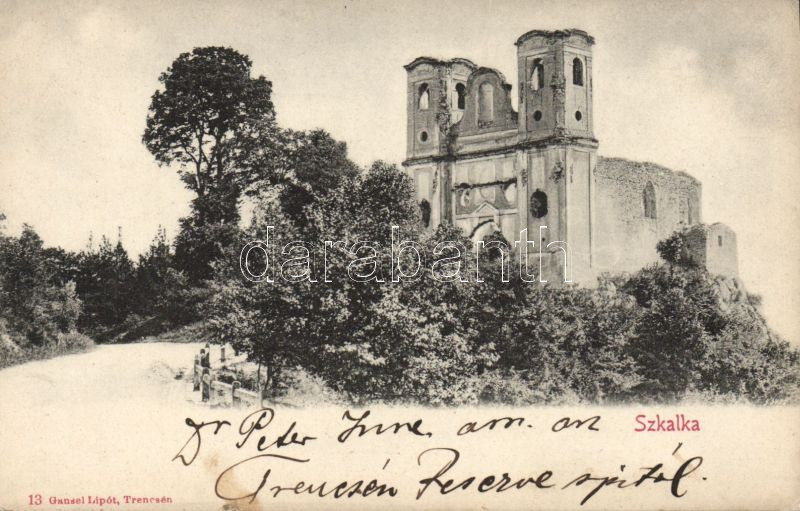 darabanth
Szkalka
Dr Peter Imre. am. an
Trencsén Reserve spitól,
13 Gansel Lipót, Trencsén